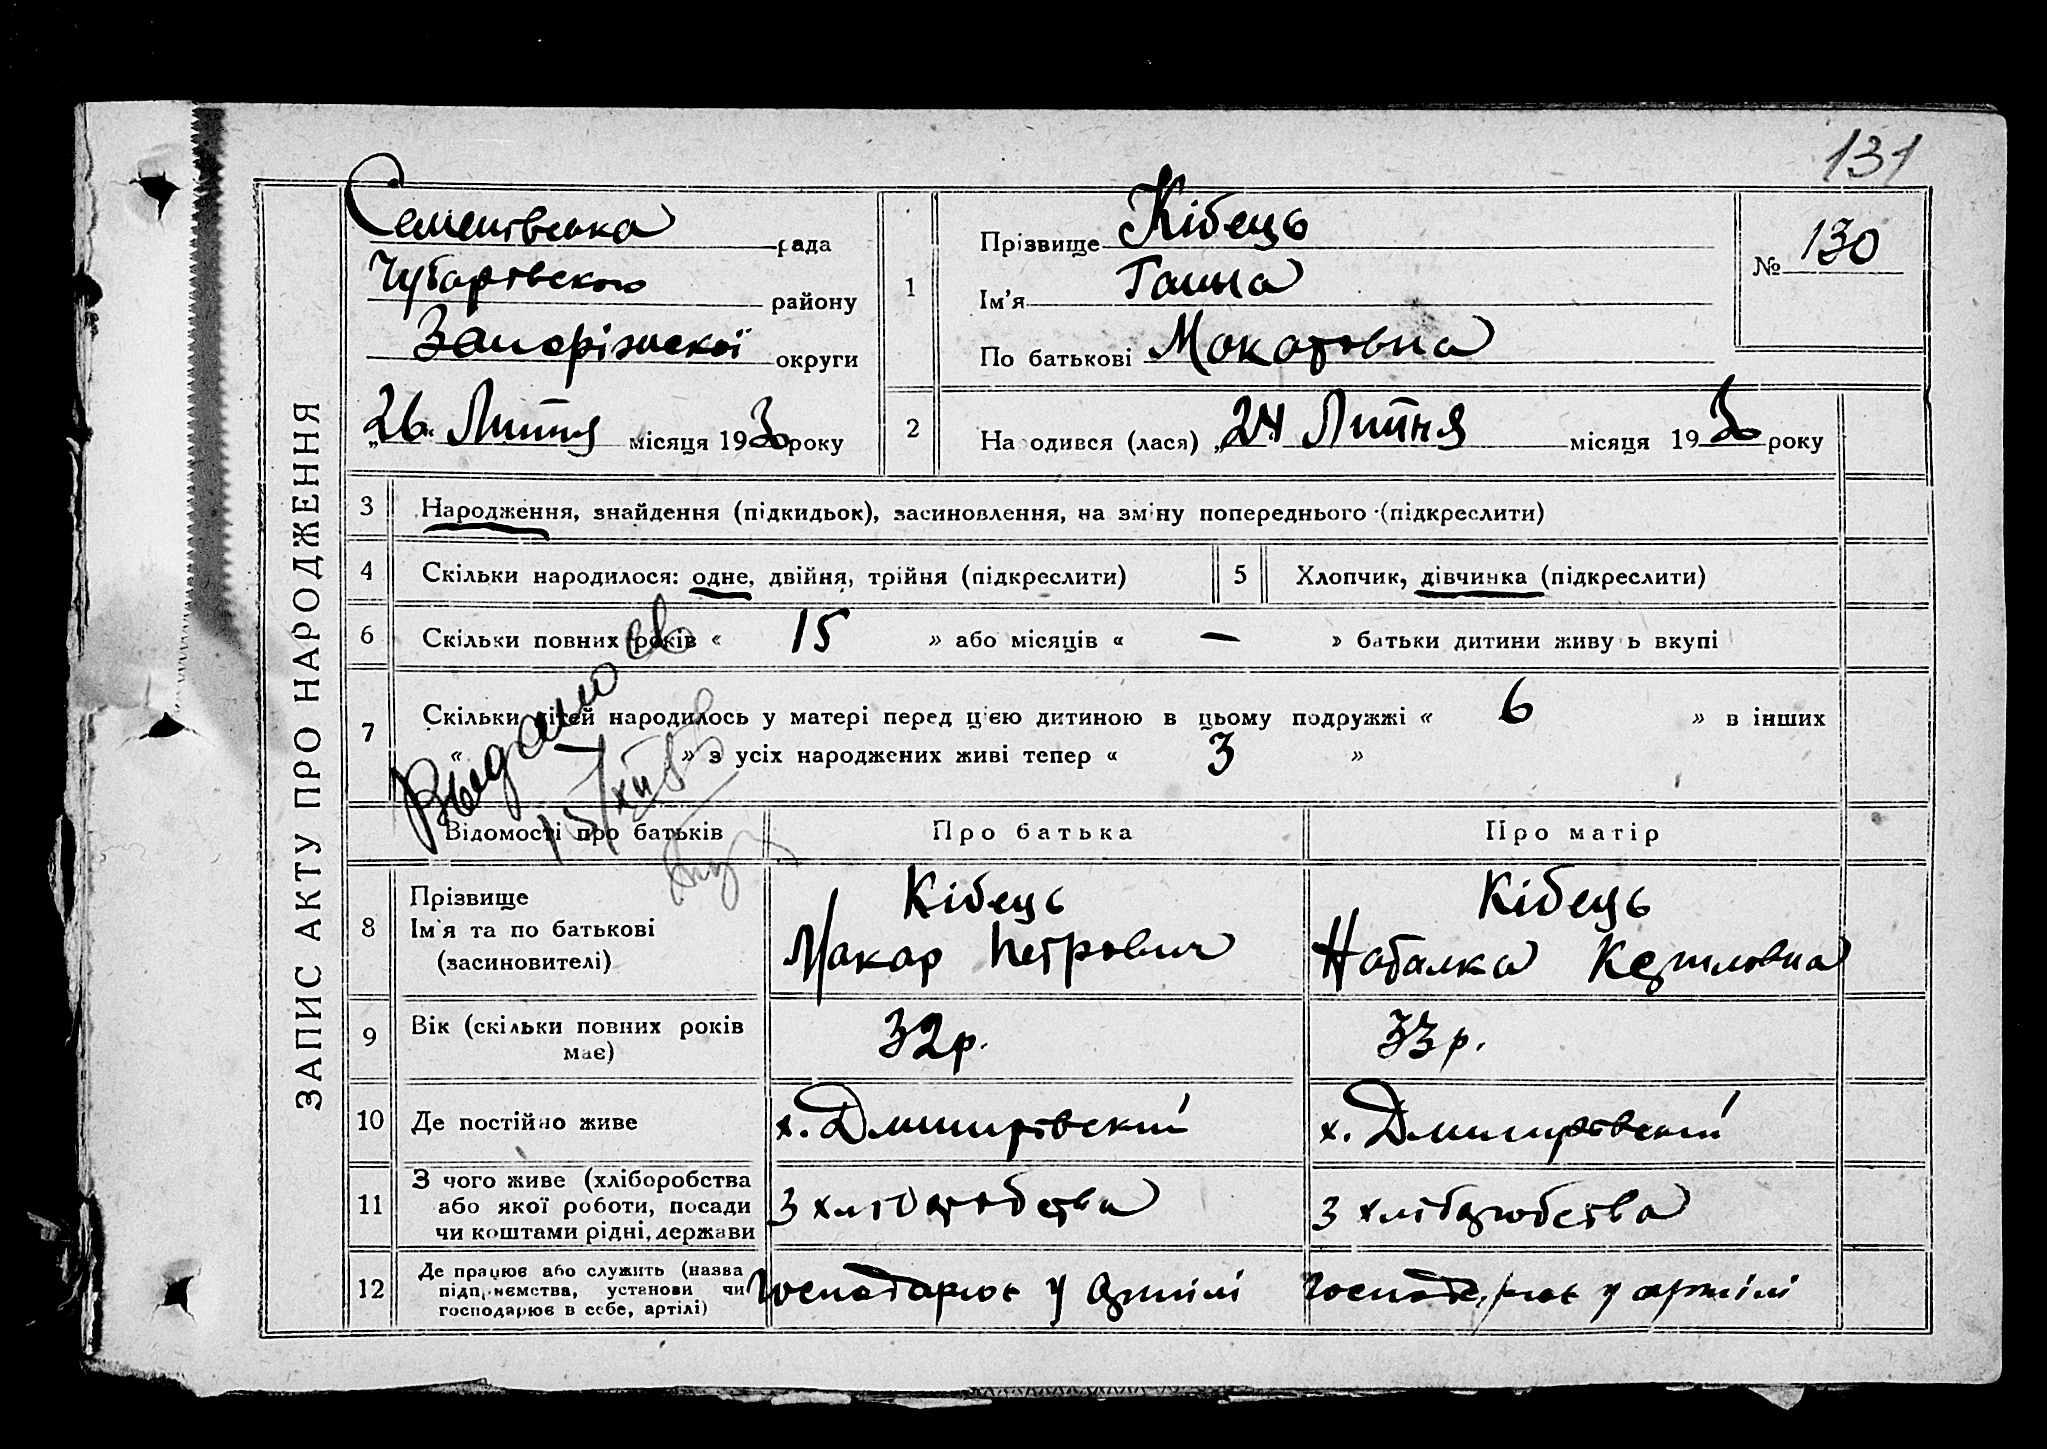 131
ЗАПИС АКТУ ПРО НАРОДЖЕННЯ
Семенівська рада
Чубарівского району
Запоріжскої округи
„26“ Липня місяця 1930 року
1
Прізвище Кібець
Ім'я Ганна
По батькові Макаровна
№ 130
2 На одився (лася) „24 Липня місяця 1930 року
3 Народження, знайдення (підкидьок), засиновлення, на зміну попереднього (підкреслити)
4 Скільки народилося: одне, двійня, трійня (підкреслити)
5 Хлопчик, дівчинка (підкреслити)
6 Скільки повних років « 15 » або місяців « — » батьки дитини живу ь вкупі
7 Скільки дітей народилось у матері перед цією дитиною в цьому подружжі « 6 » в інших
« — » з усіх народжених живі тепер « 3 »
Выдано св
15/XII
Відомості про батьків Про батька Про матір
8 Прізвище
Ім'я та по батькові
(засиновителі)
Кібець
Макар Петрович
Кібець
Наталка
9 Вік (скільки повних років
має)
32 р.
33 р.
10 Де постійно живе х. Дмитрівский х. Дмитрівский
11 З чого живе (хліборобства
або якої роботи, посади
чи коштами рідні, держави
З хліборобства
З хліборобства
12 Де працює або служить (назва
підприємства, установи чи
господарює в себе, артілі)
Господарює у артілі
Господарює у артілі